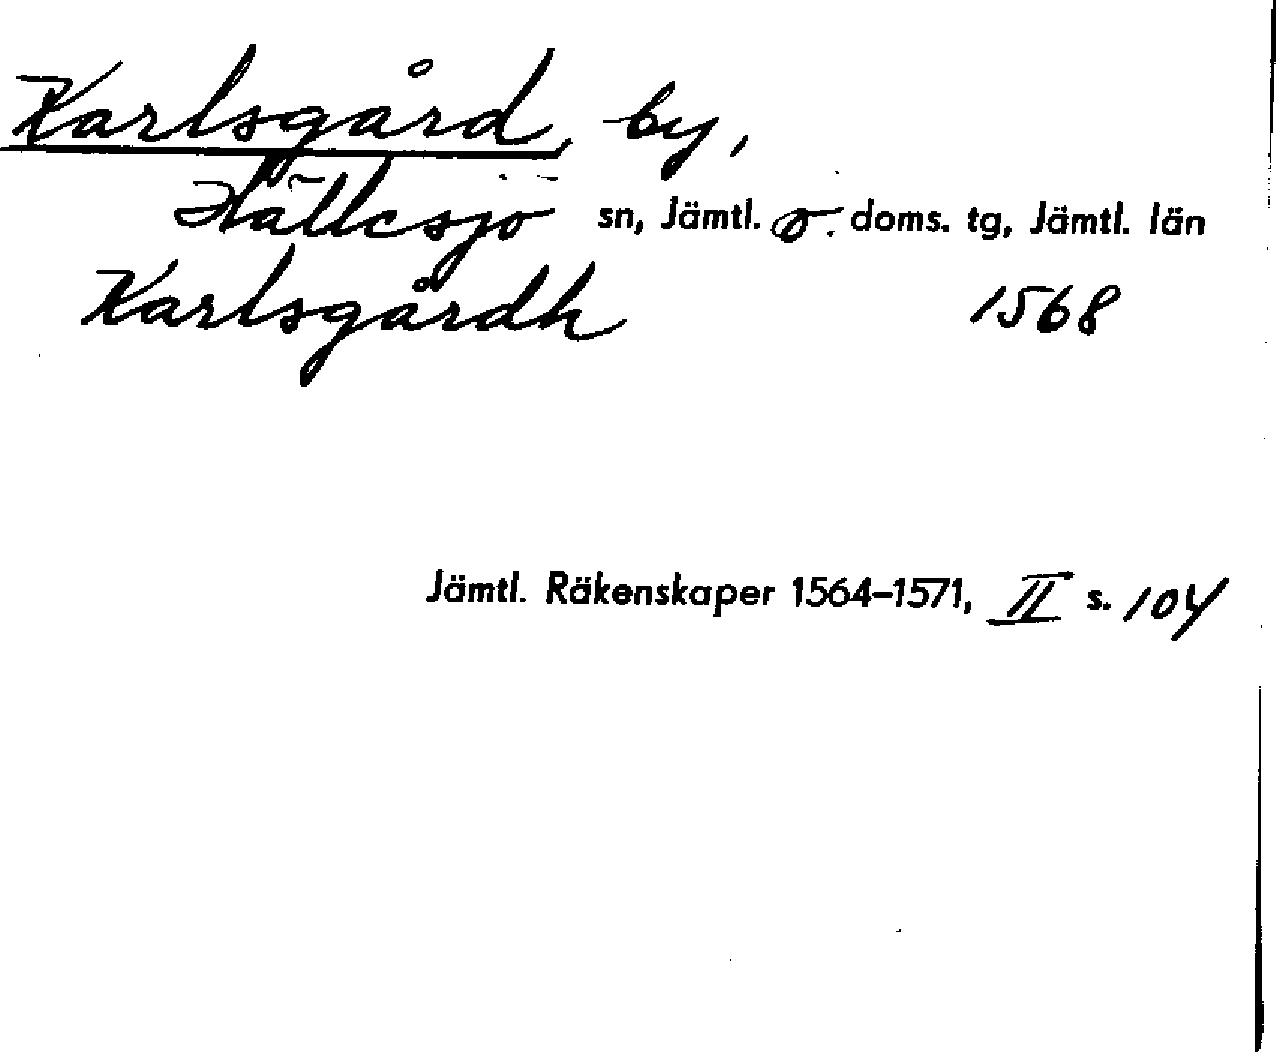 Karlsgård, by,
Hällesjö sn, Jämtl. ö. doms. tg, Jämtl. län
Karlsgårdh 1568
Jämtl. Räkenskaper 1564–1571, II s. 104